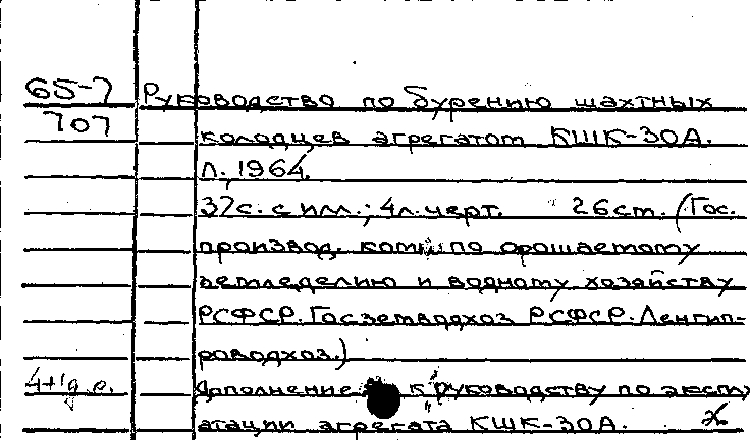 65-7 Руководство по бурению шахтных
707 колодцев агрегатом КШК-30А.
Л., 1964.
37с. с илл.; 4л. черт. 26 ст. (Гос.
производ. ком. по орошаемому
земледелию и водному хозяйству
РСФСР. Госземводхоз РСФСР. Ленгип-
роводхоз.)
Дополнение к "руководству по экспл
атации агрегата КШК-30А.